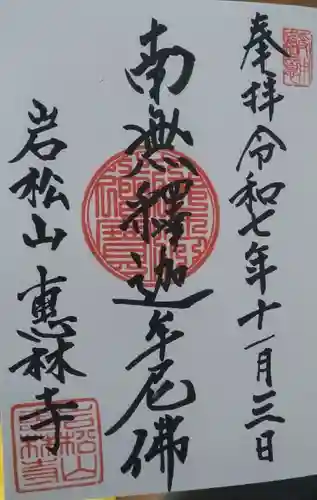 奉拝 令和七年十一月三日
南無釋迦牟尼佛
岩松山 恵林寺